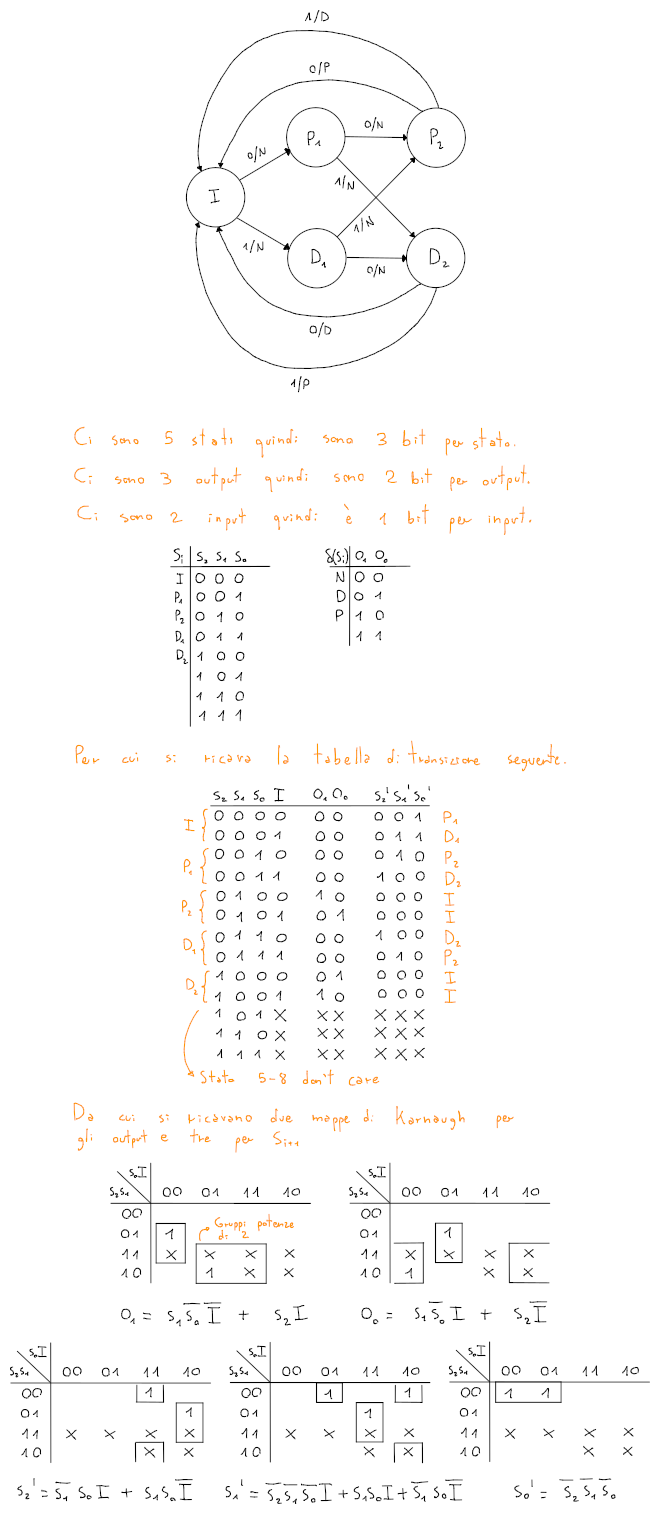 1/D
0/P
P₁ 0/N P₂
0/N
I 1/N
1/N
1/N D₁ 0/N D₂
0/D
1/P
Ci sono 5 stati quindi sono 3 bit per stato.
Ci sono 3 output quindi sono 2 bit per output.
Ci sono 2 input quindi è 1 bit per input.
Sᵢ S₂ S₁ S₀ δ(Sᵢ) O₁ O₀
I 0 0 0 N 0 0
P₁ 0 0 1 D 0 1
P₂ 0 1 0 P 1 0
D₁ 0 1 1 1 1
D₂ 1 0 0
1 0 1
1 1 0
1 1 1
Per cui si ricava la tabella di transizione seguente.
S₂ S₁ S₀ I O₁ O₀ S₂' S₁' S₀'
I { 0 0 0 0 0 0 0 0 1 P₁
0 0 0 1 0 0 0 1 1 D₁
P₁ { 0 0 1 0 0 0 0 1 0 P₂
0 0 1 1 0 0 1 0 0 D₂
P₂ { 0 1 0 0 1 0 0 0 0 I
0 1 0 1 0 1 0 0 0 I
D₁ { 0 1 1 0 0 0 1 0 0 D₂
0 1 1 1 0 0 0 1 0 P₂
D₂ { 1 0 0 0 0 1 0 0 0 I
1 0 0 1 1 0 0 0 0 I
1 0 1 X X X X X X
1 1 0 X X X X X X
1 1 1 X X X X X X
Stato 5-8 don't care
Da cui si ricavano due mappe di Karnaugh per
gli output e tre per Sᵢ₊₁
S₀I S₂S₁ 00 01 11 10
00
01 1 Gruppi potenze di 2
11 X X X X
10 1 X X
O₁ = S₁S̅₀I̅ + S₂I
S₀I S₂S₁ 00 01 11 10
00
01 1
11 X X X X
10 1 X X
O₀ = S₁S̅₀I + S₂I̅
S₀I S₂S₁ 00 01 11 10
00 1
01 1
11 X X X X
10 X X
S₂' = S̅₁S₀I + S₁S₀I̅
S₀I S₂S₁ 00 01 11 10
00 1 1
01 1
11 X X X X
10 X X
S₁' = S̅₂S̅₁S̅₀I + S₁S₀I + S̅₁S₀I̅
S₀I S₂S₁ 00 01 11 10
00 1 1
01
11 X X X X
10 X X
S₀' = S̅₂S̅₁S̅₀